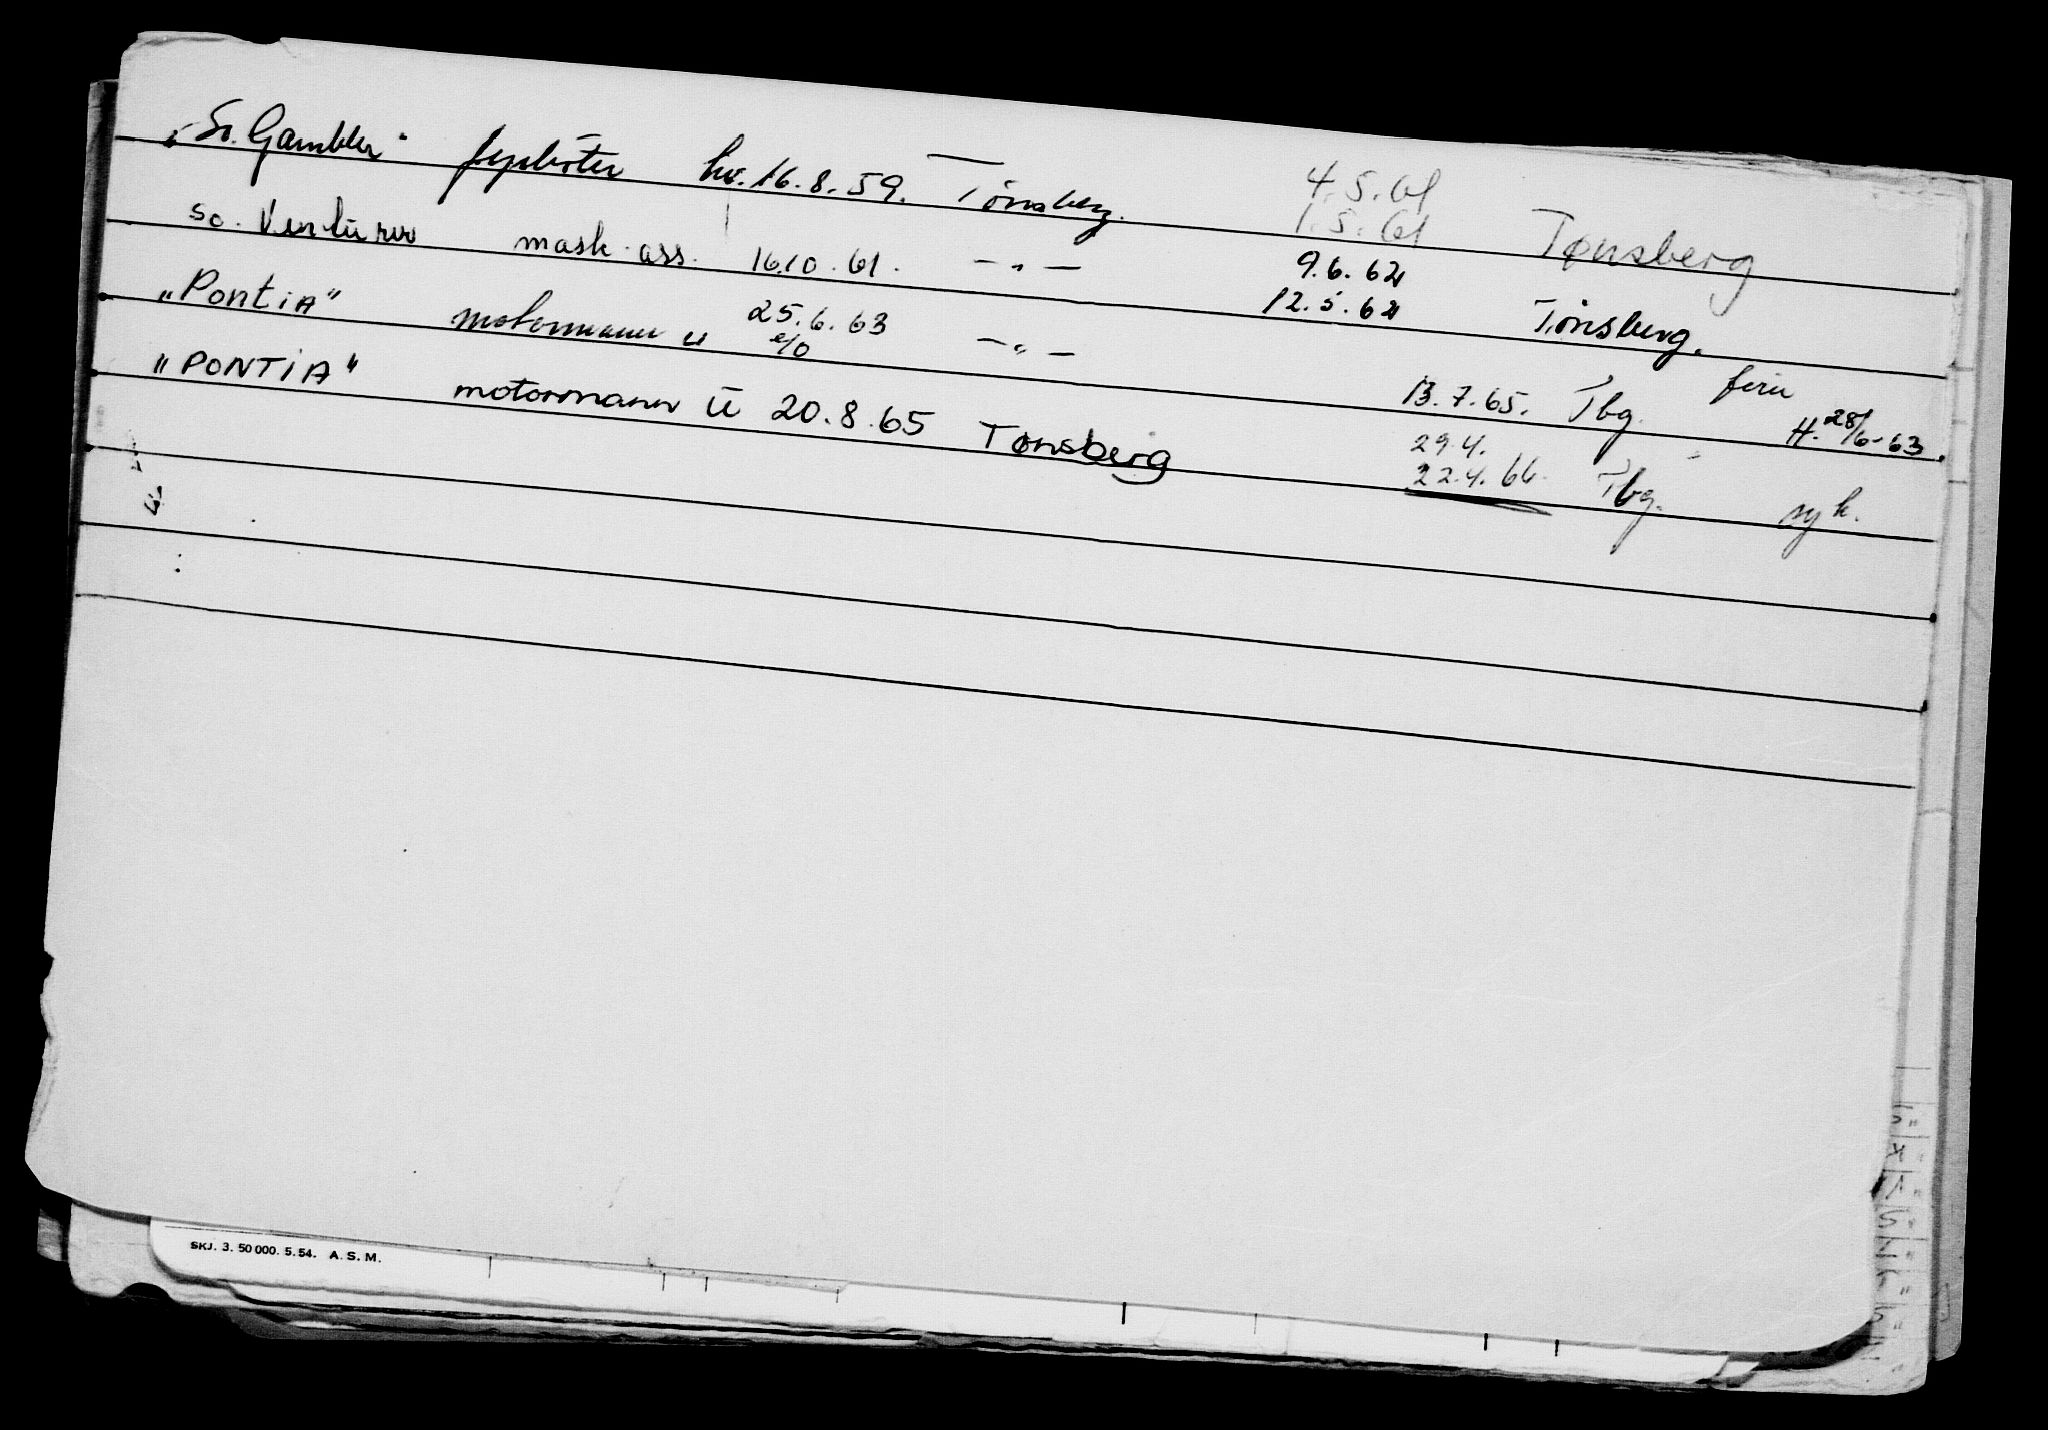 "So. Gambler" fyrbøter hv. 16.8.59. Tønsberg. 4.5.61 1.5.61 Tønsberg
so. Venturer mask. ass. 16.10.61. — " — 9.6.62 12.5.62 Tønsberg.
"PontiA" motormann u 25.6.63 e/o — " — 13.7.65. Tbg. ferie H. 28/6-63.
"PONTiA" motormann U 20.8.65 Tønsberg 29.4. 22.4.66. Tbg. syk.
SKJ. 3. 50 000. 5. 54. A. S. M.